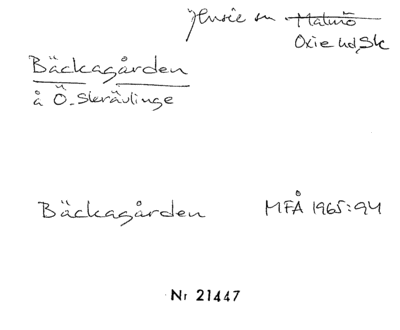 Husie sn Malmö
Oxie hd, Sk
Bäckagården
å Ö. Skrävlinge
Bäckagården MFÅ 1965:94
Nr 21447